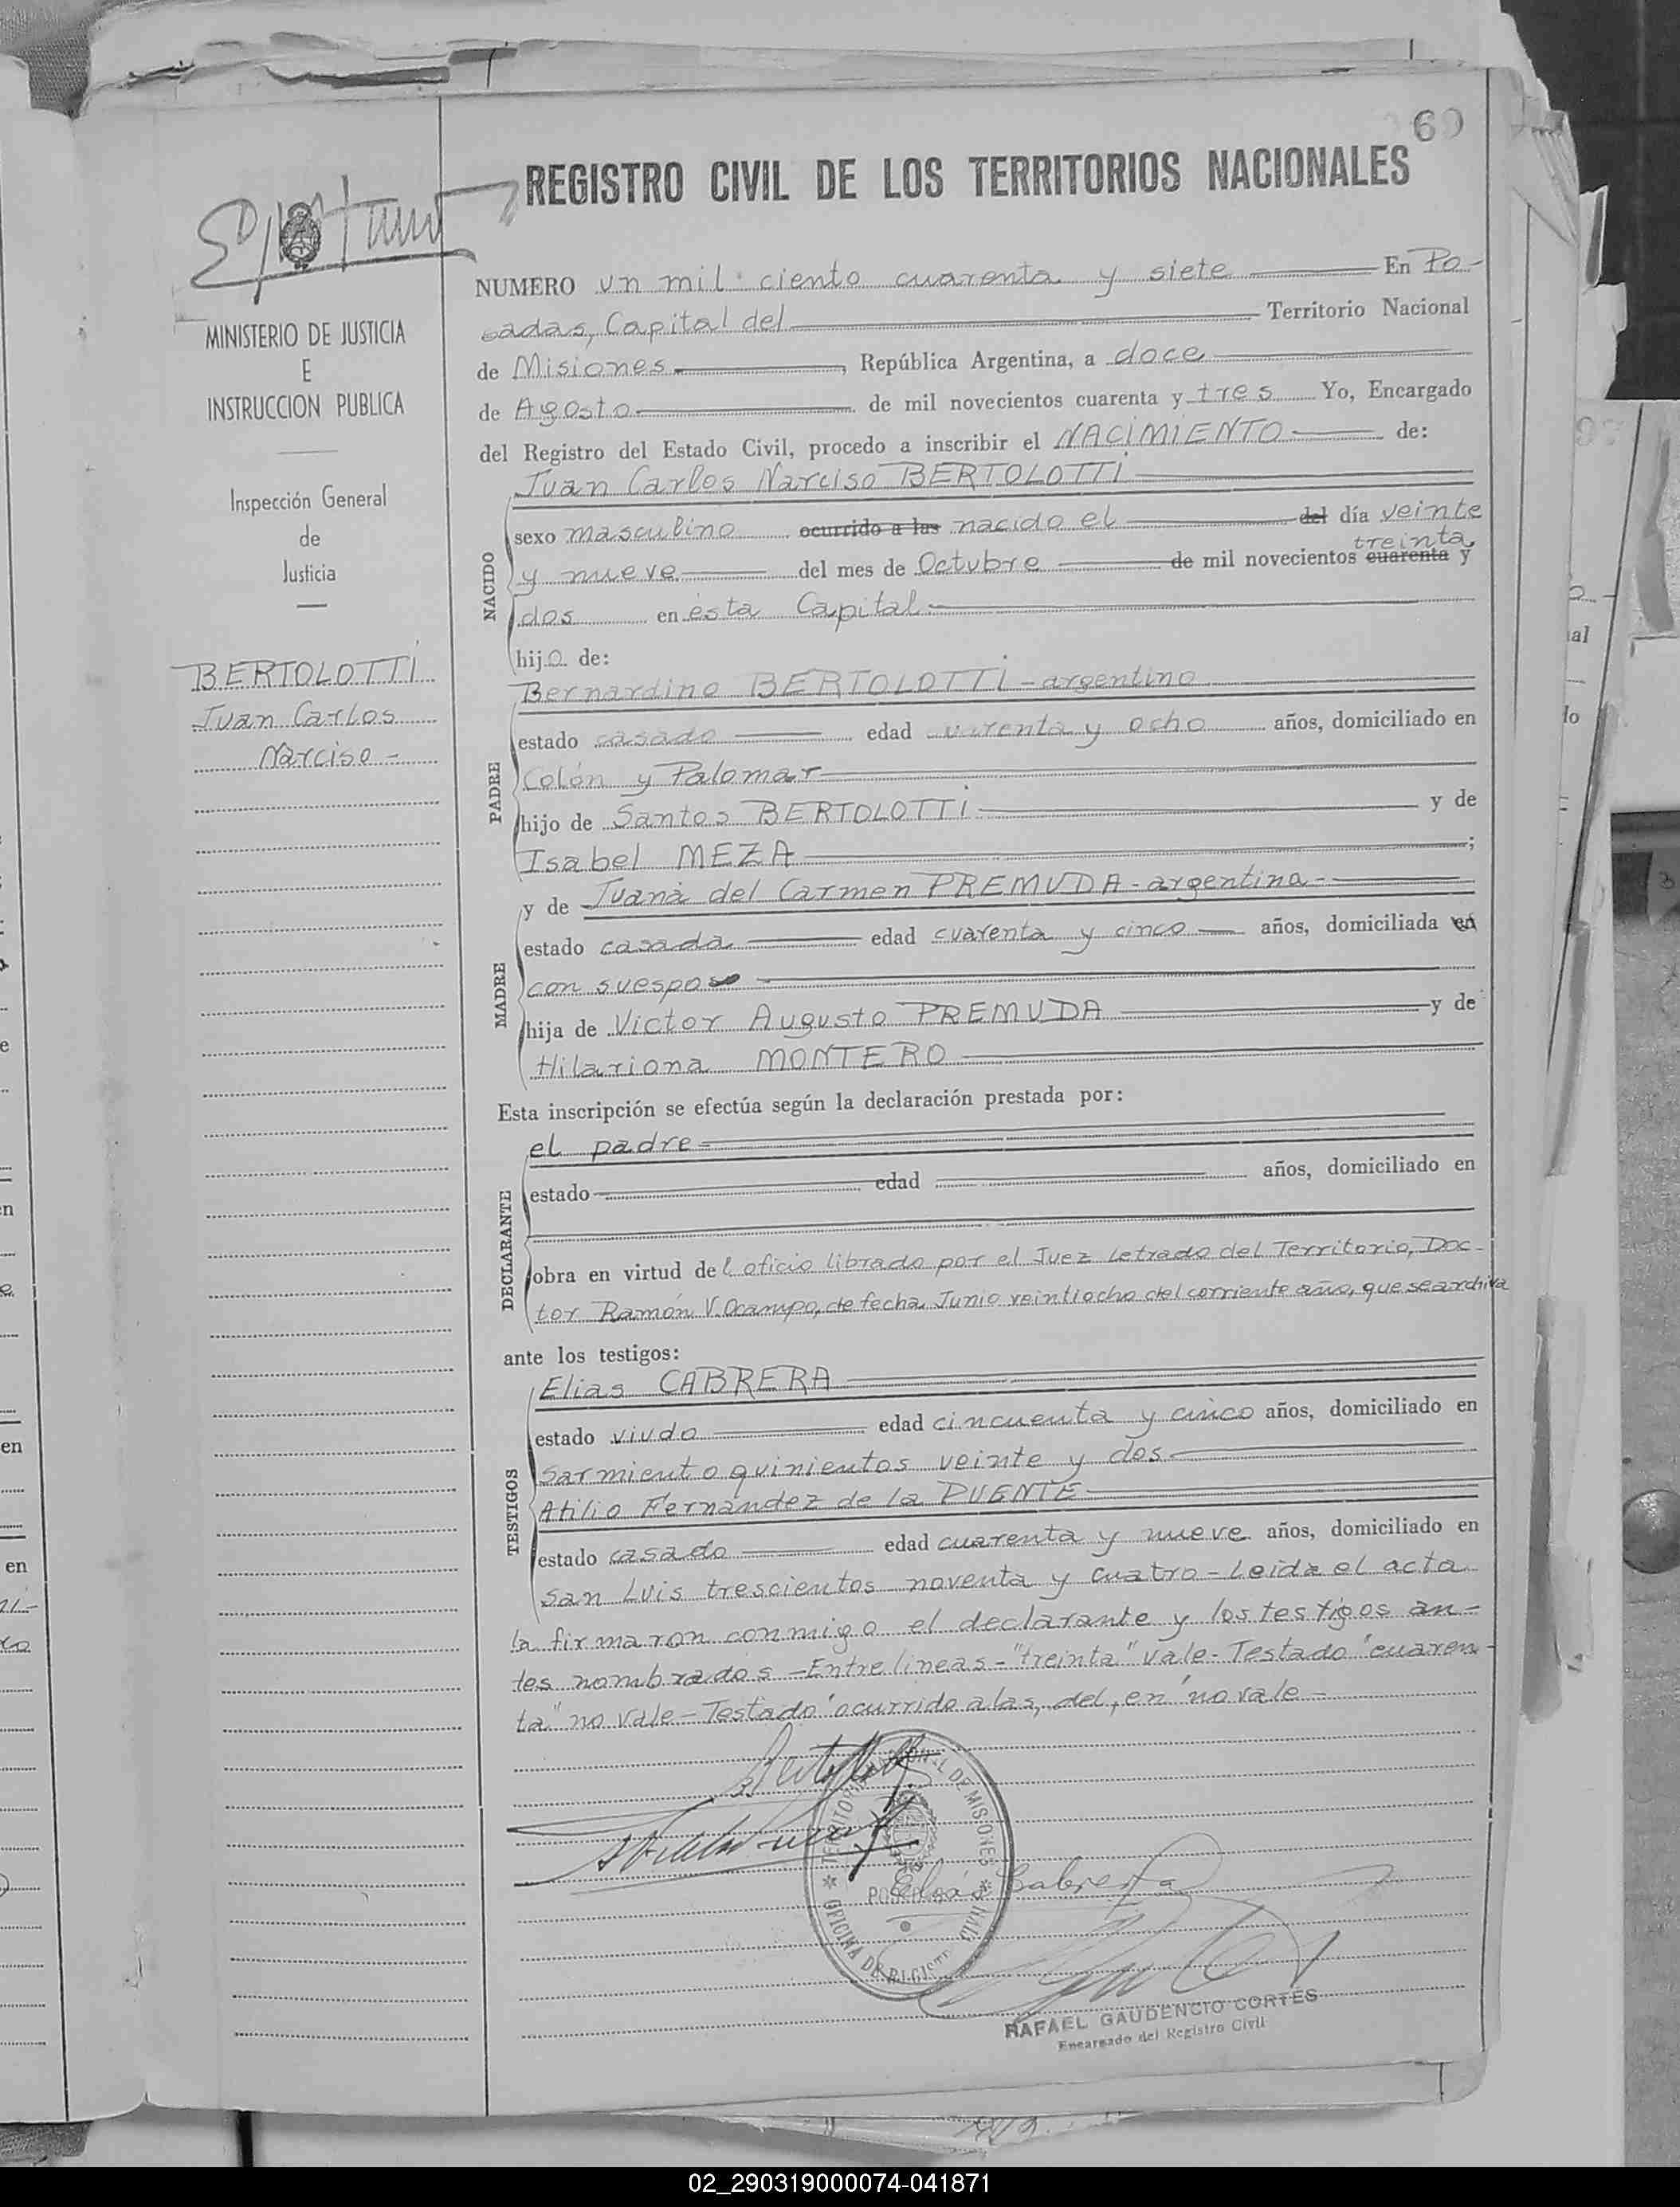 69
REGISTRO CIVIL DE LOS TERRITORIOS NACIONALES
MINISTERIO DE JUSTICIA
E
INSTRUCCION PUBLICA
Inspección General
de
Justicia
BERTOLOTTI
Juan Carlos
Narciso -
NUMERO un mil ciento cuarenta y siete En Po-
sadas, Capital del Territorio Nacional
de Misiones, República Argentina, a doce
de Agosto de mil novecientos cuarenta y tres Yo, Encargado
del Registro del Estado Civil, procedo a inscribir el NACIMIENTO de:
Juan Carlos Narciso BERTOLOTTI
NACIDO
sexo masculino ocurrido a las nacido el del día veinte
treinta
y nueve del mes de Octubre de mil novecientos cuarenta y
dos en ésta Capital.
hijo de:
Bernardino BERTOLOTTI - argentino
PADRE
estado casado edad cuarenta y ocho años, domiciliado en
Colón y Palomar
hijo de Santos BERTOLOTTI y de
Isabel MEZA ;
y de Juana del Carmen PREMUDA - argentina -
MADRE
estado casada edad cuarenta y cinco años, domiciliada en
con suesposo
hija de Victor Augusto PREMUDA y de
Hilariona MONTERO
Esta inscripción se efectúa según la declaración prestada por:
el padre
DECLARANTE
estado edad años, domiciliado en
obra en virtud del oficio librado por el Juez Letrado del Territorio, Doc-
tor Ramón V. Ocampo, de fecha Junio veintiocho del corriente año, que se archiva
ante los testigos:
Elias CABRERA
TESTIGOS
estado viudo edad cincuenta y cinco años, domiciliado en
Sarmiento quinientos veinte y dos
Atilio Fernández de la PUENTE
estado casado edad cuarenta y nueve años, domiciliado en
San Luis trescientos noventa y cuatro - Leida el acta
la firmaron conmigo el declarante y los testigos an-
tes nombrados - Entre lineas - "treinta" vale - Testado "cuaren-
ta" no vale - Testado "ocurrido a las, del, en" no vale -
TERRITORIO NACIONAL DE MISIONES
POSADAS
OFICINA DE REGISTRO
Elías Cabrera
RAFAEL GAUDENCIO CORTÉS
Encargado del Registro Civil
02_290319000074-041871